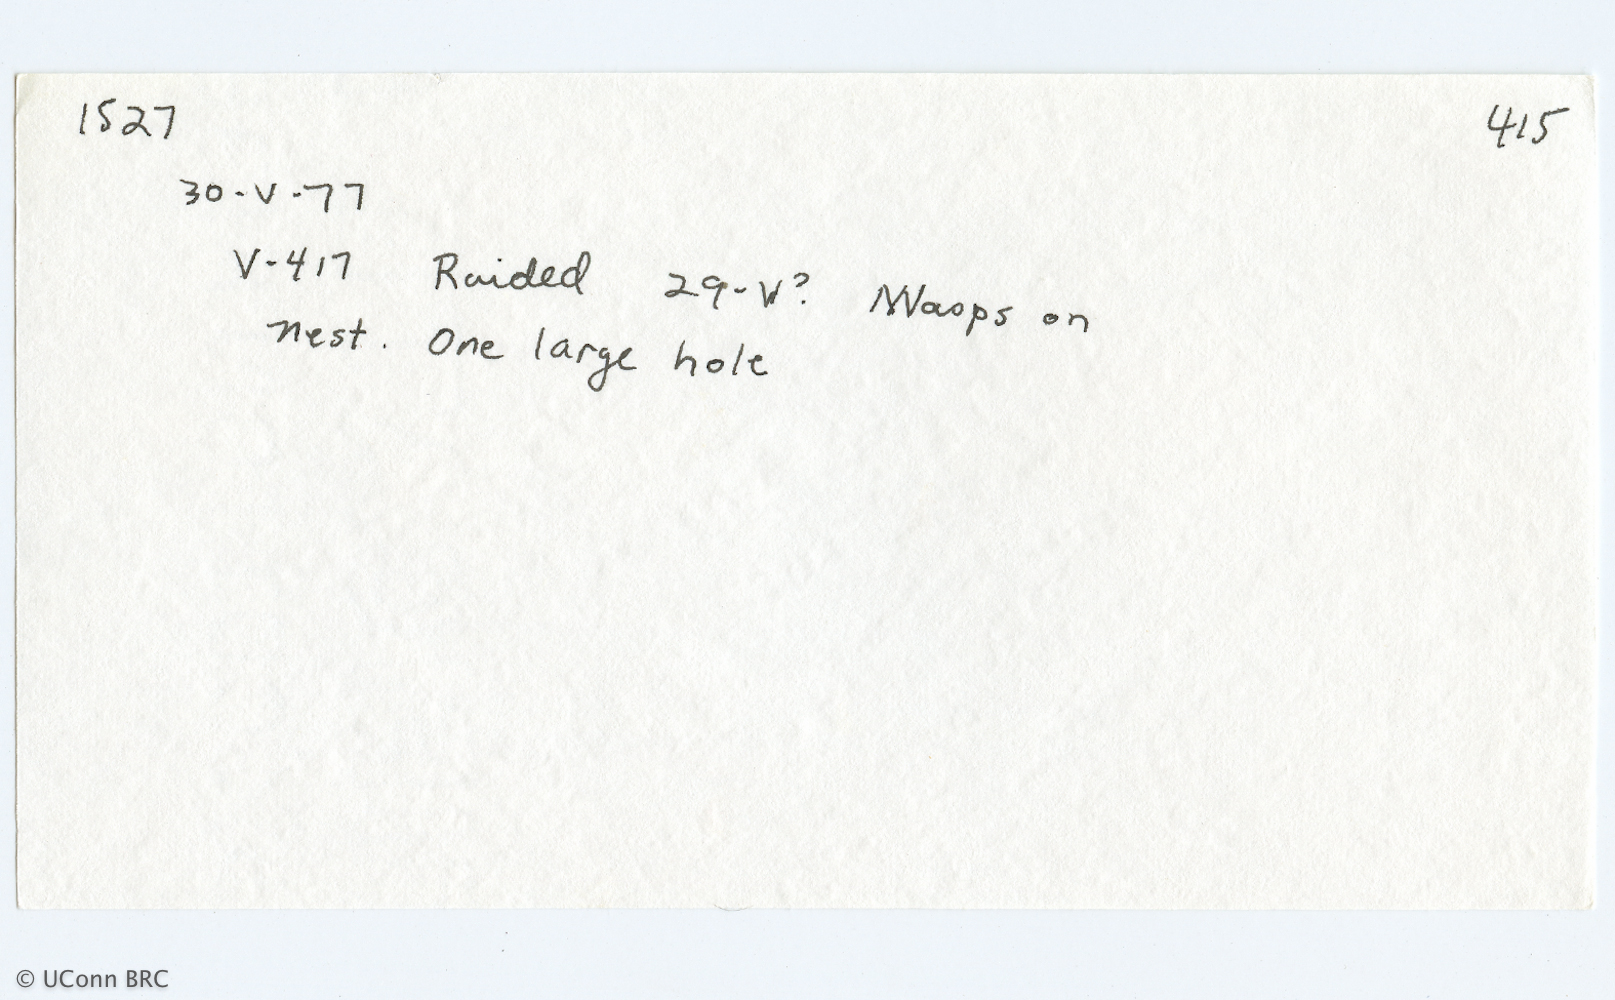 1527 415
30-V-77
V-417 Raided 29-V? Wasps on
nest. One large hole
© UConn BRC